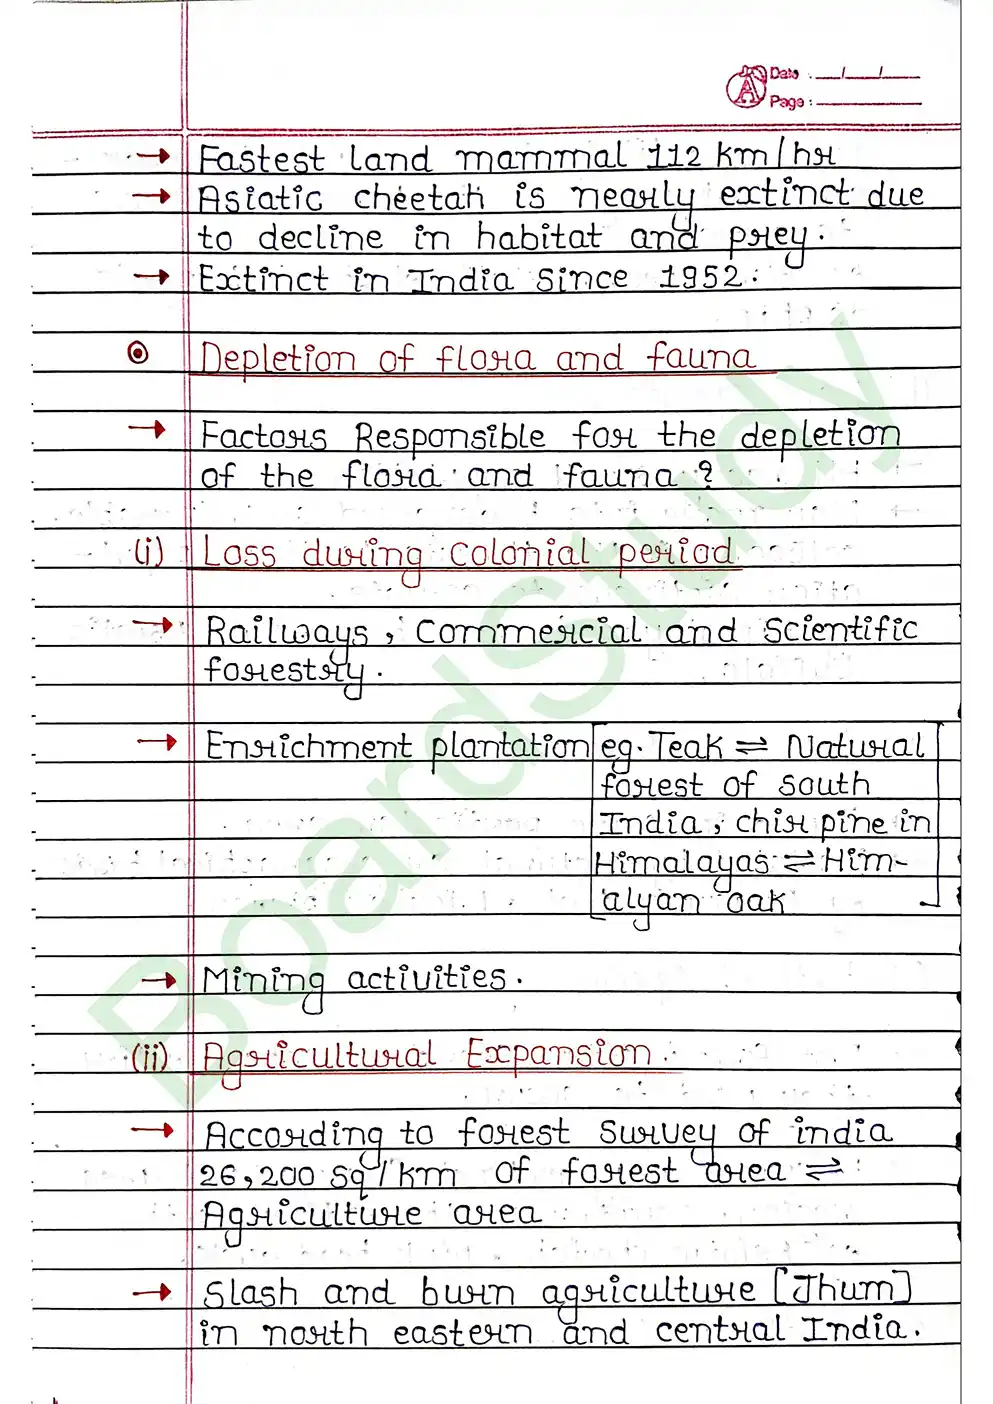 Date : __/__/__
Page :
→ Fastest land mammal 112 km/hr
→ Asiatic cheetah is nearly extinct due
to decline in habitat and prey.
→ Extinct in India Since 1952.
Depletion of flora and fauna
→ Factors Responsible for the depletion
of the flora and fauna ?
(i) Loss during Colonial period
→ Railways, Commercial and Scientific
forestry.
→ Enrichment plantation eg. Teak ⇌ Natural
forest of south
India, chir pine in
Himalayas ⇌ Him-
alyan oak
→ Mining activities.
(ii) Agricultural Expansion.
→ According to forest survey of india
26,200 sq/km of forest area ⇌
Agriculture area
→ Slash and burn agriculture [Jhum]
in north eastern and central India.
BoardStudy